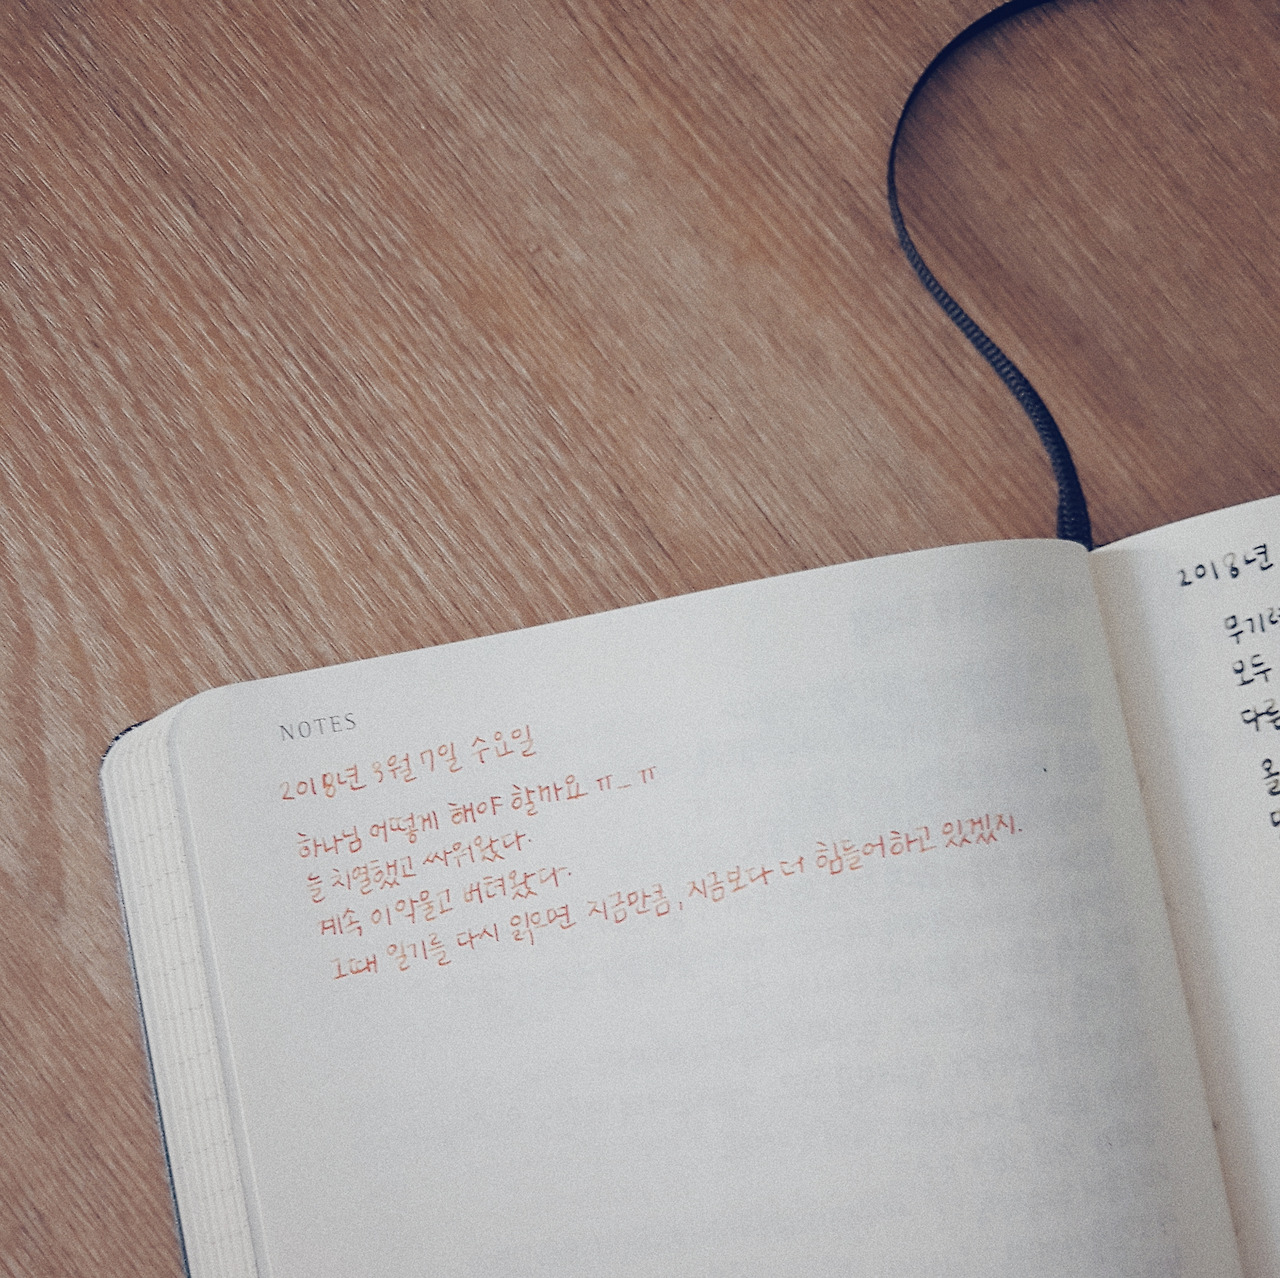 NOTES
2018년 3월 7일 수요일
하나님 어떻게 해야 할까요 ㅠ_ㅠ
늘 치열했고 싸워왔다.
계속 이악물고 버텨왔다.
그때 일기를 다시 읽으면 지금만큼, 지금보다 더 힘들어하고 있겠지.
2018년
무기력
모두
다른
올